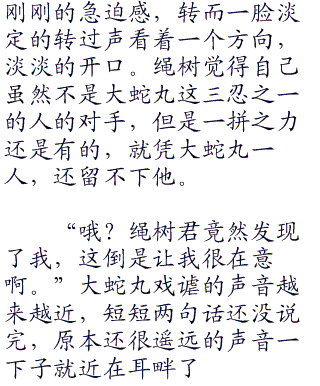 刚刚的急迫感，转而一脸淡
定的转过声看着一个方向，
淡淡的开口。绳树觉得自己
虽然不是大蛇丸这三忍之一
的人的对手，但是一拼之力
还是有的，就凭大蛇丸一
人，还留不下他。
“哦？绳树君竟然发现
了我，这倒是让我很在意
啊。”大蛇丸戏谑的声音越
来越近，短短两句话还没说
完，原本还很遥远的声音一
下子就近在耳畔了